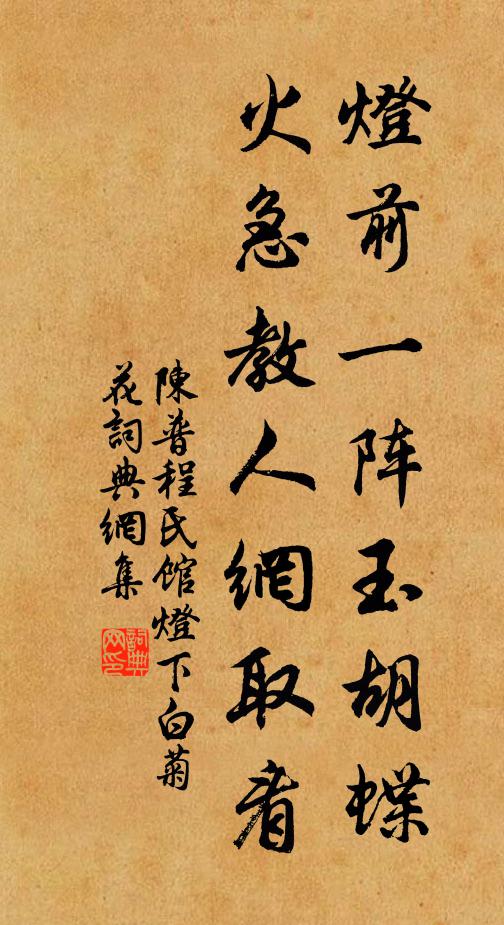 燈前一阵玉胡蝶
火急教人網取看
陳普程氏館燈下白菊
花詞典網集
詞典网印